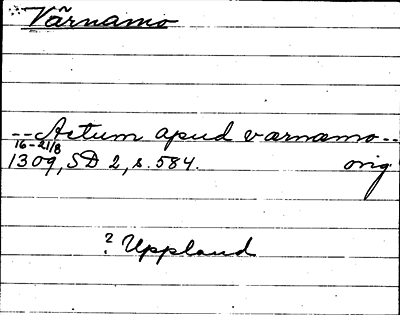 Värnamo
-- Actum apud værnæmo --
16-21/8
1309, SD 2, s. 584. orig
? Uppland